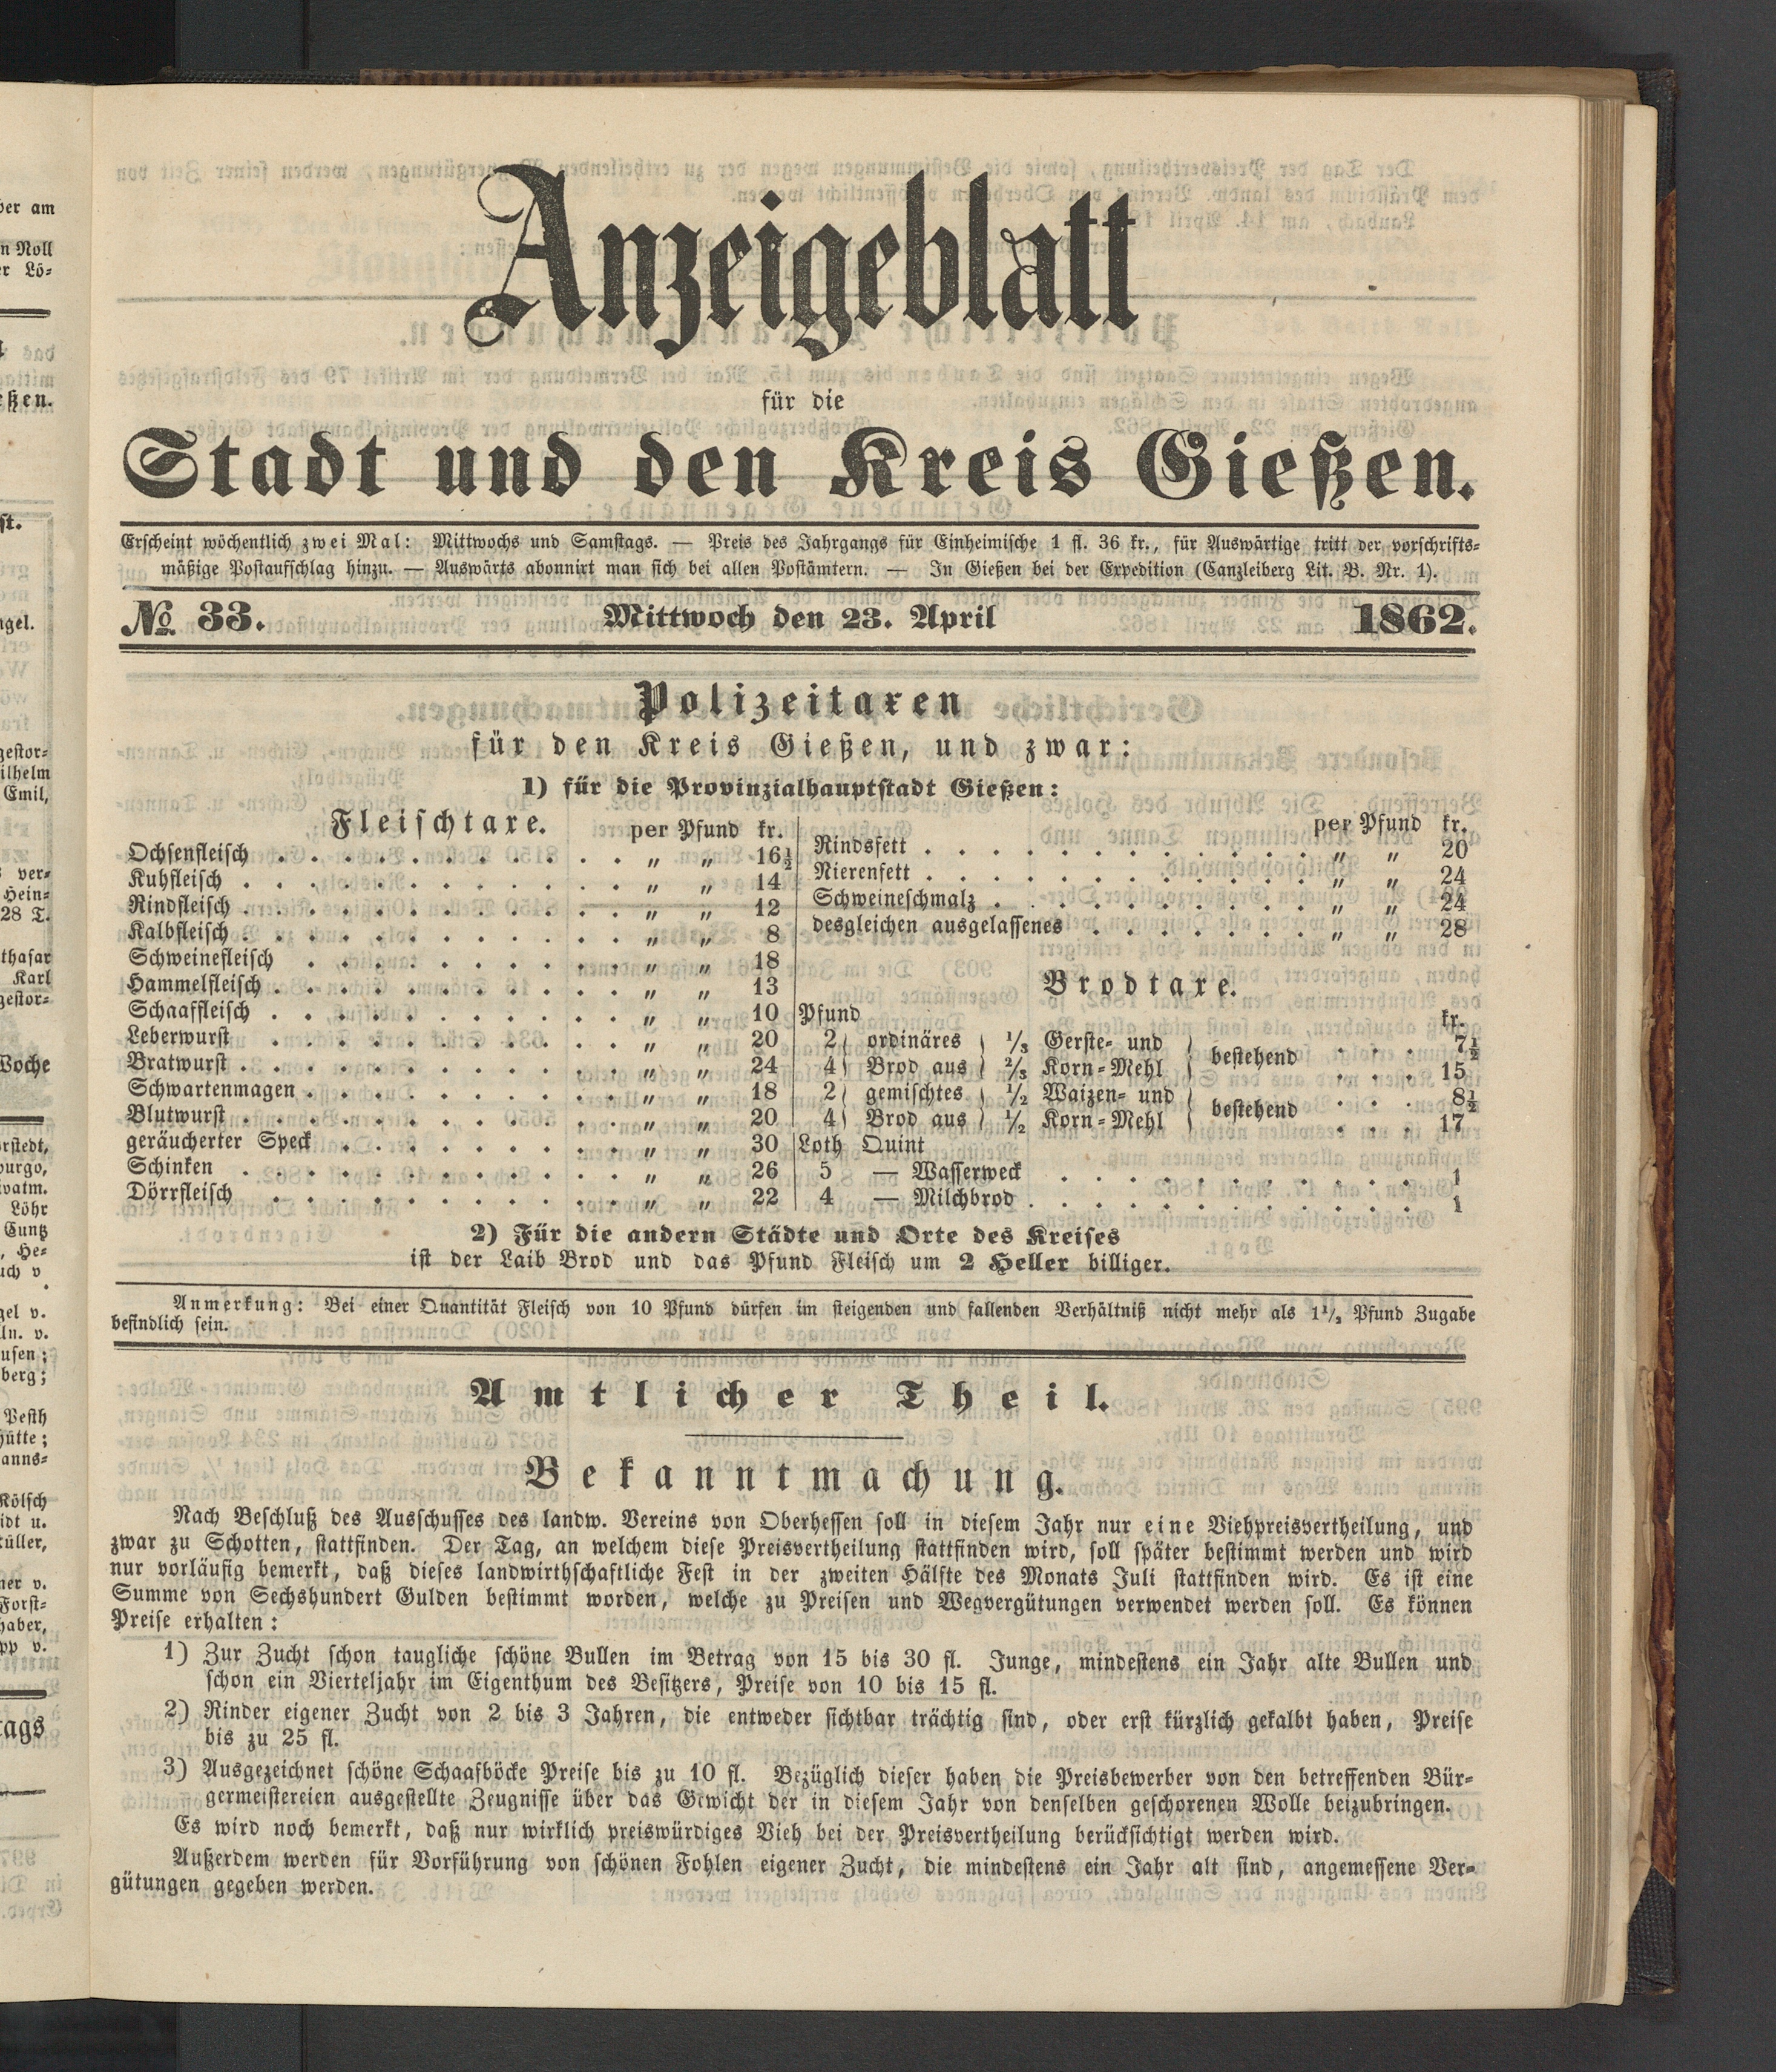 Anzeigeblatt
für die
Stadt und den Kreis Gießen.
Erscheint wöchentlich zwei Mal: Mittwochs und Samstags. — Preis des Jahrgangs für Einheimische 1 fl. 36 kr., für Auswärtige tritt der vorschrifts-
mäßige Postaufschlag hinzu. — Auswärts abonnirt man sich bei allen Postämtern. — In Gießen bei der Expedition (Canzleiberg Lit. B. Nr. 1).
№ 33. Mittwoch den 23. April 1862.
Polizeitaxen
für den Kreis Gießen, und zwar:
1) für die Provinzialhauptstadt Gießen:
Fleischtaxe. per Pfund kr.
Ochsenfleisch . . . . . . . . . . . „ „ 16½
Kuhfleisch . . . . . . . . . . . . „ „ 14
Rindfleisch . . . . . . . . . . . . „ „ 12
Kalbfleisch . . . . . . . . . . . . „ „ 8
Schweinefleisch . . . . . . . . . . „ „ 18
Hammelfleisch . . . . . . . . . . . „ „ 13
Schaaffleisch . . . . . . . . . . . „ „ 10
Leberwurst . . . . . . . . . . . „ „ 20
Bratwurst . . . . . . . . . . . . „ „ 24
Schwartenmagen . . . . . . . . . . „ „ 18
Blutwurst . . . . . . . . . . . . „ „ 20
geräucherter Speck . . . . . . . . . „ „ 30
Schinken . . . . . . . . . . . . „ „ 26
Dörrfleisch . . . . . . . . . . . „ „ 22
per Pfund kr.
Rindsfett . . . . . . . . . . . . „ „ 20
Nierenfett . . . . . . . . . . . . „ „ 24
Schweineschmalz . . . . . . . . . . „ „ 24
desgleichen ausgelassenes . . . . . . . „ „ 28
Brodtaxe.
Pfund kr.
2) ordinäres ) ⅓ Gerste- und } bestehend . . . 7½
4) Brod aus ) ⅔ Korn-Mehl } . . . 15
2) gemischtes ) ½ Waizen- und } bestehend . . . 8½
4) Brod aus ) ½ Korn-Mehl } . . . 17
Loth Quint
5 — Wasserweck . . . . . . . . . . 1
4 — Milchbrod . . . . . . . . . . . 1
2) Für die andern Städte und Orte des Kreises
ist der Laib Brod und das Pfund Fleisch um 2 Heller billiger.
Anmerkung: Bei einer Quantität Fleisch von 10 Pfund dürfen im steigenden und fallenden Verhältniß nicht mehr als 1½ Pfund Zugabe
befindlich sein.
Amtlicher Theil.
Bekanntmachung.
Nach Beschluß des Ausschusses des landw. Vereins von Oberhessen soll in diesem Jahr nur eine Viehpreisvertheilung, und
zwar zu Schotten, stattfinden. Der Tag, an welchem diese Preisvertheilung stattfinden wird, soll später bestimmt werden und wird
nur vorläufig bemerkt, daß dieses landwirthschaftliche Fest in der zweiten Hälfte des Monats Juli stattfinden wird. Es ist eine
Summe von Sechshundert Gulden bestimmt worden, welche zu Preisen und Wegvergütungen verwendet werden soll. Es können
Preise erhalten:
1) Zur Zucht schon taugliche schöne Bullen im Betrag von 15 bis 30 fl. Junge, mindestens ein Jahr alte Bullen und
schon ein Vierteljahr im Eigenthum des Besitzers, Preise von 10 bis 15 fl.
2) Rinder eigener Zucht von 2 bis 3 Jahren, die entweder sichtbar trächtig sind, oder erst kürzlich gekalbt haben, Preise
bis zu 25 fl.
3) Ausgezeichnet schöne Schaafböcke Preise bis zu 10 fl. Bezüglich dieser haben die Preisbewerber von den betreffenden Bür-
germeistereien ausgestellte Zeugnisse über das Gewicht der in diesem Jahr von denselben geschorenen Wolle beizubringen.
Es wird noch bemerkt, daß nur wirklich preiswürdiges Vieh bei der Preisvertheilung berücksichtigt werden wird.
Außerdem werden für Vorführung von schönen Fohlen eigener Zucht, die mindestens ein Jahr alt sind, angemessene Ver-
gütungen gegeben werden.